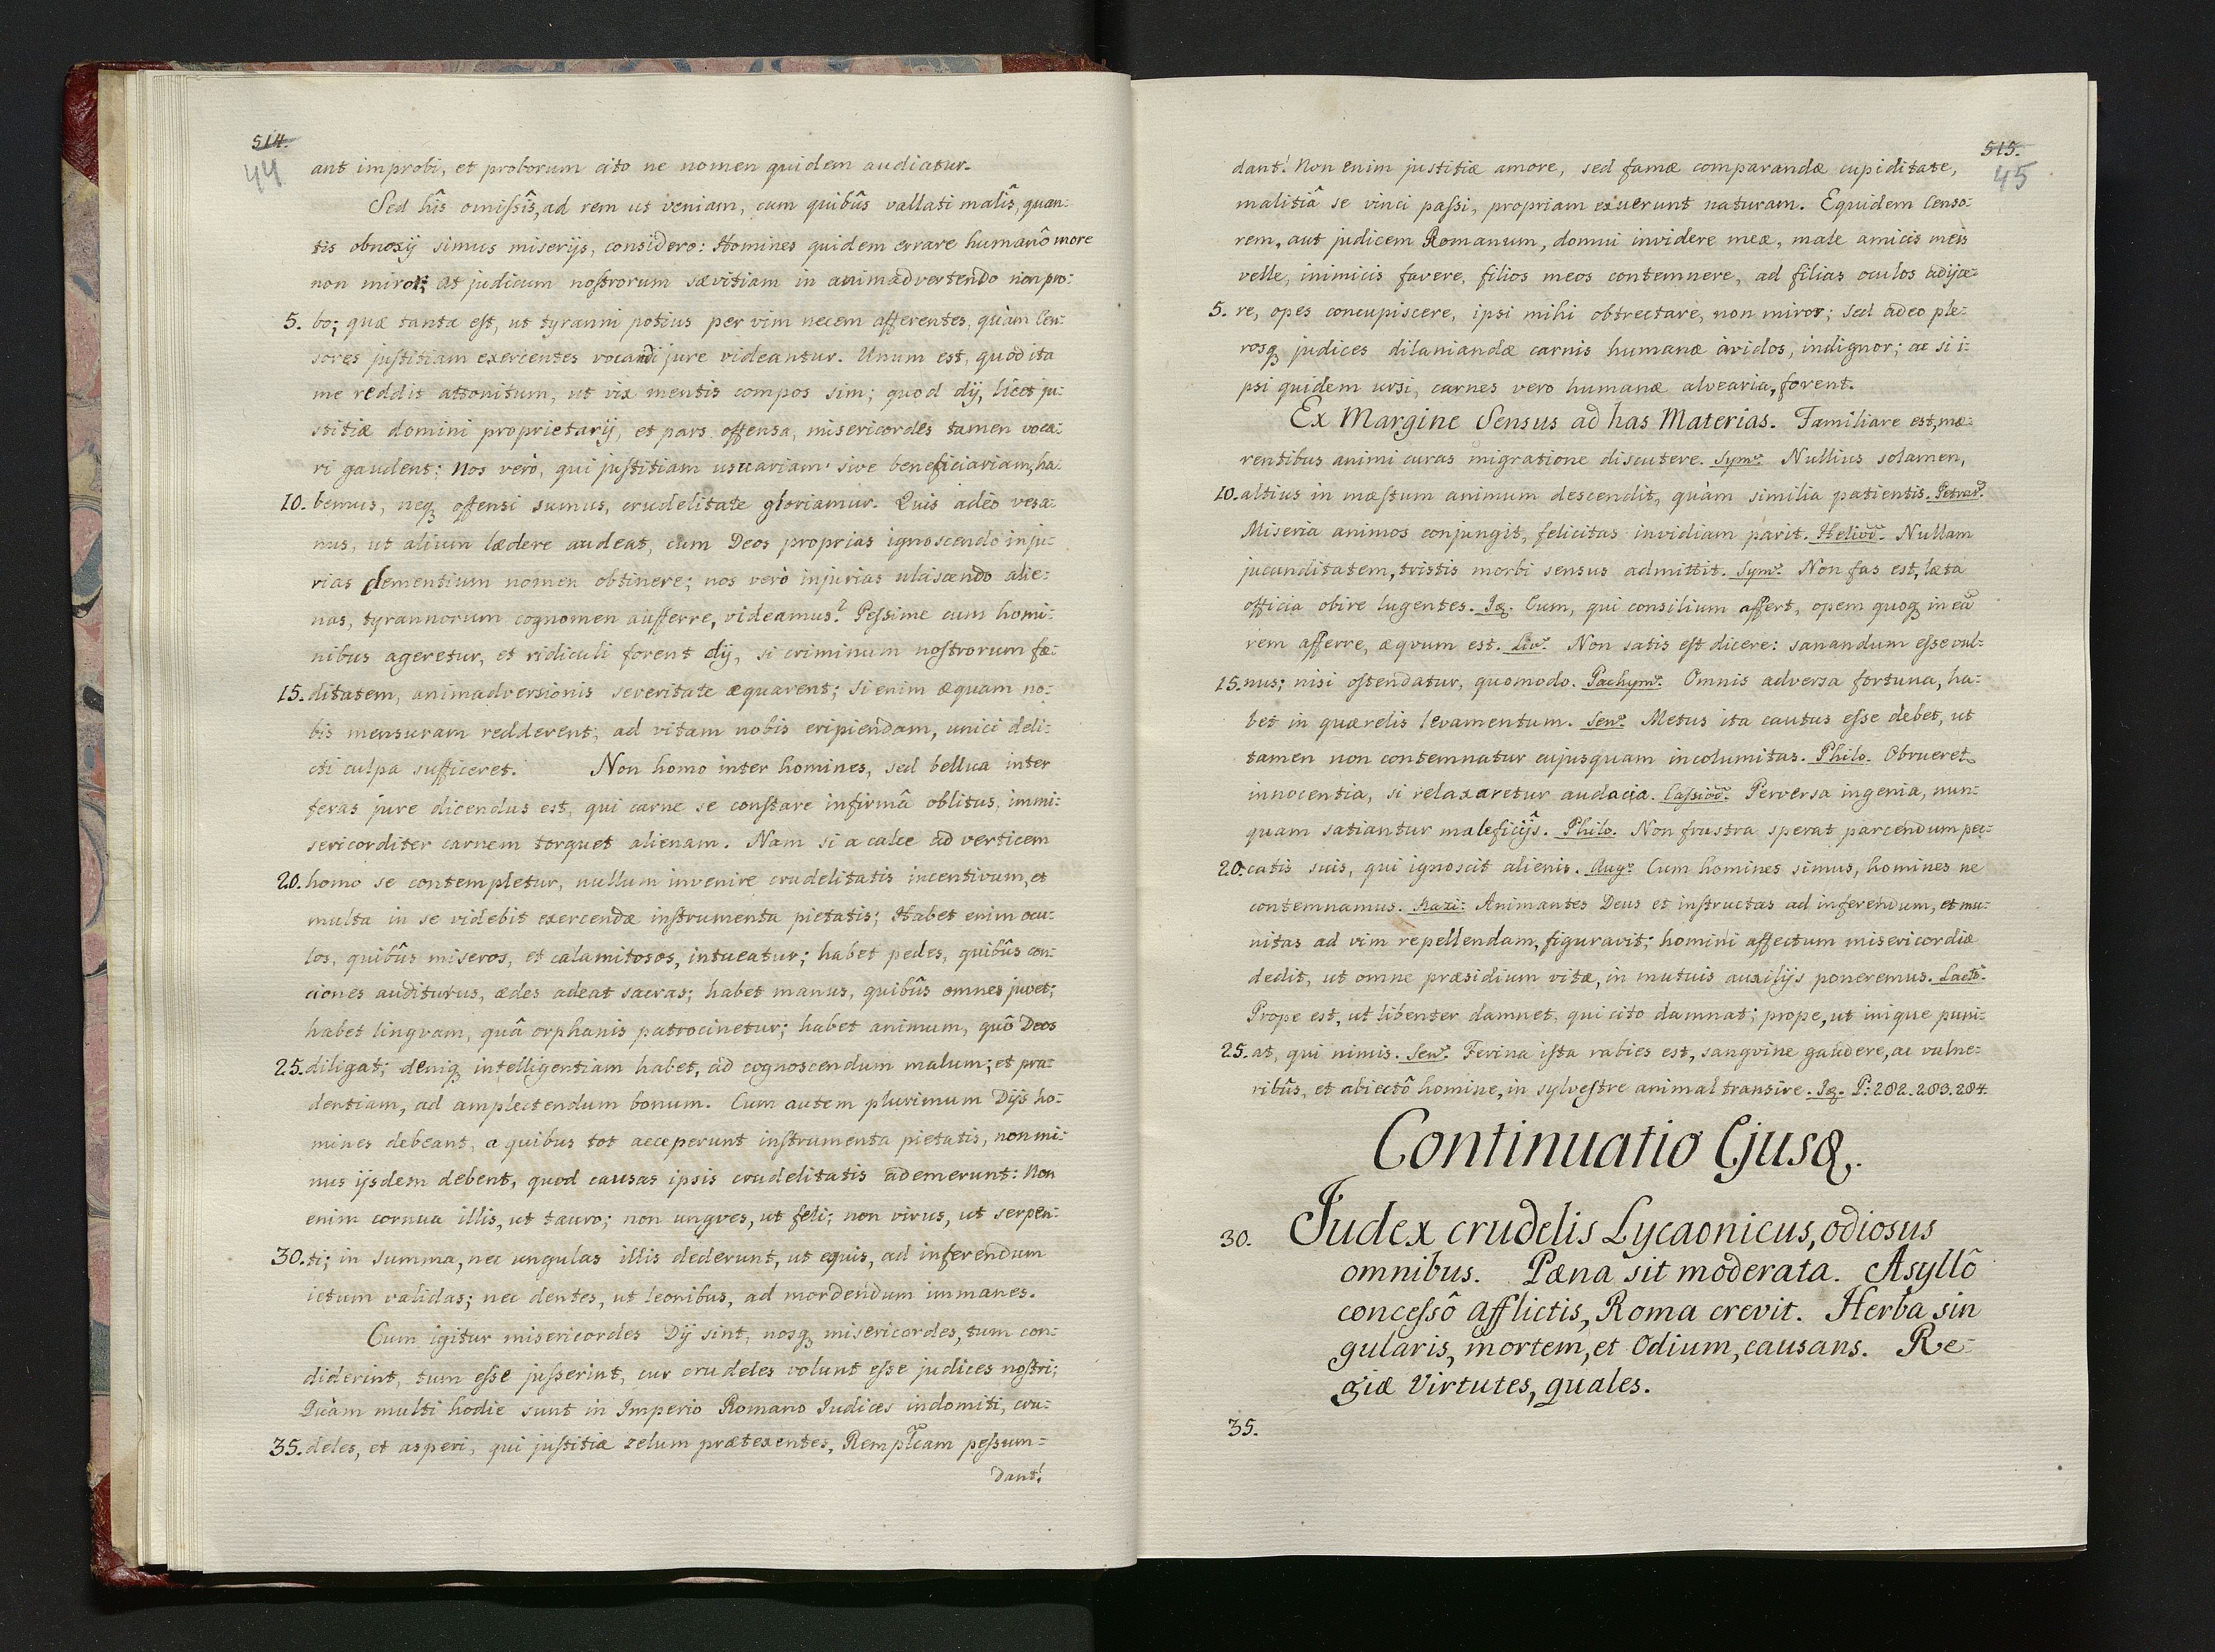 514.
44
ant improbi, et proborum cito ne nomen quidem audiatur.
Sed hîs omissîs, ad rem ut veniam, cum quibûs vallati malîs, quan:
tis obnoxij simus miserijs, considero: Homines quidem errare humanô more
non miror; at judicum nostrorum sævitiam in animadvertendo non pro:
5. bo; quæ tanta est, ut tyranni potius per vim necem afferentes, quàm Cen:
sores justitiam exercentes vocandi jure videantur. Unum est, quod ita
me reddit attonitum, ut vix mentis compos sim; quod dij, licet ju:
stitiæ domini proprietarij, et pars offensa, misericordes tamen voca:
ri gaudent; Nos verò, qui justitiam usuariam sive beneficiariam, ha:
10. bemus, neq offensi sumus, crudelitate gloriamur. Quis adeò vesa:
nus, ut alium lædere audeat, cum Deos proprias ignoscendo inju:
rias clementium nomen obtinere; nos verò injurias ulciscendo alie:
nas, tyrannorum cognomen aufferre, videamus? Pessime cum homi:
nibus ageretur, et ridiculi forent dij, si criminum nostrorum fæ:
15. ditatem, animadversionis severitate æquarent; si enim æquam no:
bis mensuram redderent, ad vitam nobis eripiendam, unici deli:
cti culpa sufficeret. Non homo inter homines, sed bellua inter
feras jure dicendus est, qui carne se constare infirmâ oblitus, immi:
sericorditer carnem torquet alienam. Nam si a calce ad verticem
20. homo se contempletur, nullum invenire crudelitatis incentivum, et
multa in se videbit exercendæ instrumenta pietatis; Habet enim ocu:
los, quibûs miseros, et calamitosos, intueatur; habet pedes, quibûs con:
ciones auditurus, ædes adeat sacras; habet manus, quibûs omnes juvet;
habet lingvam, quâ orphanis patrocinetur; habet animum, quô Deos
25. diligat; deniq intelligentiam habet, ad cognoscendum malum; et pru:
dentiam, ad amplectendum bonum. Cum autem plurimum Dijs ho:
mines debeant, a quibus tot acceperunt instrumenta pietatis, non mi:
nus ijsdem debent, quod causas ipsis crudelitatis ademerunt: Non
enim cornua illis, ut tauro; non ungves, ut feli; non virus, ut serpen:
30. ti; in summa, nec ungulas illis dederunt, ut equis, ad inferendum
ictum validas; nec dentes, ut leonibus, ad mordendum immanes.
Cum igitur misericordes Dij sint, nosq misericordes, tum con:
diderint, tum esse jusserint, cur crudeles volunt esse judices nostri;
Quàm multi hodie sunt in Imperio Romano Iudices indomiti, cru:
35. deles, et asperi, qui justitiæ zelum prætexentes, Remplcam pessum=
dant!
515.
45
dant! Non enim justitiæ amore, sed famæ comparandæ cupiditate,
malitiâ se vinci passi, propriam exuerunt naturam. Equidem Censo:
rem, aut judicem Romanum, domui invidere meæ, male amicis meis
velle, inimicis favere, filios meos contemnere, ad filias oculos adijce:
5. re, opes concupiscere, ipsi mihi obtrectare, non miror; sed adeo ple:
rosq judices dilaniandæ carnis humanæ àvidos, indignor; ac si i:
psi quidem ursi, carnes vero humanæ alvearia, forent.
Ex Margine Sensus ad has Materias. Familiare est, mæ:
rentibus animi curas migratione discutere. Sym: Nullius solamen,
10. altius in mæstum animum descendit, quàm similia patientis. Petrar:
Miseria animos conjungit, felicitas invidiam parit. Heliod: Nullam
jucunditatem, tristis morbi sensus admittit. Sym: Non fas est, læta
officia obire lugentes. Iq. Cum, qui consilium affert, opem quoq in eâ
rem afferre, æqvum est. Liv: Non satis est dicere: sanandum esse vul:
15. nus; nisi ostendatur, quomodo. Pachym: Omnis adversa fortuna, ha:
bet in quærelis levamentum. Sen: Metus ita cautus esse debet, ut
tamen non contemnatur cujusquam incolumitas. Philo. Obrueret
innocentia, si relaxaretur audacia. Cassiod: Perversa ingenia, nun:
quam satiantur maleficijs. Philo. Non frustra sperat parcendum pec:
20. catis suis, qui ignoscit alienis. Aug: Cum homines simus, homines ne
contemnamus. Nazi: Animantes Deus et instructas ad inferendum, et mu:
nitas ad vim repellendam, figuravit; homini affectum misericordiæ
dedit, ut omne præsidium vitæ, in mutuis auxilijs poneremus. Lact:
Prope est, ut libenter damnet, qui cito damnat; prope, ut inique puni:
25. at, qui nimis. Sen: Ferina ista rabies est, sangvine gaudere, ac vulne:
ribûs, et abiectô homine, in sylvestre animal transire. Iq. P: 282. 283. 284.
Continuatio Ejusq.
30. Judex crudelis Lycaonicus, odiosus
omnibus. Pæna sit moderata. Asyllô
concessô afflictis, Roma crevit. Herba sin
gularis, mortem, et Odium, causans. Re:
giæ Virtutes, quales.
35.